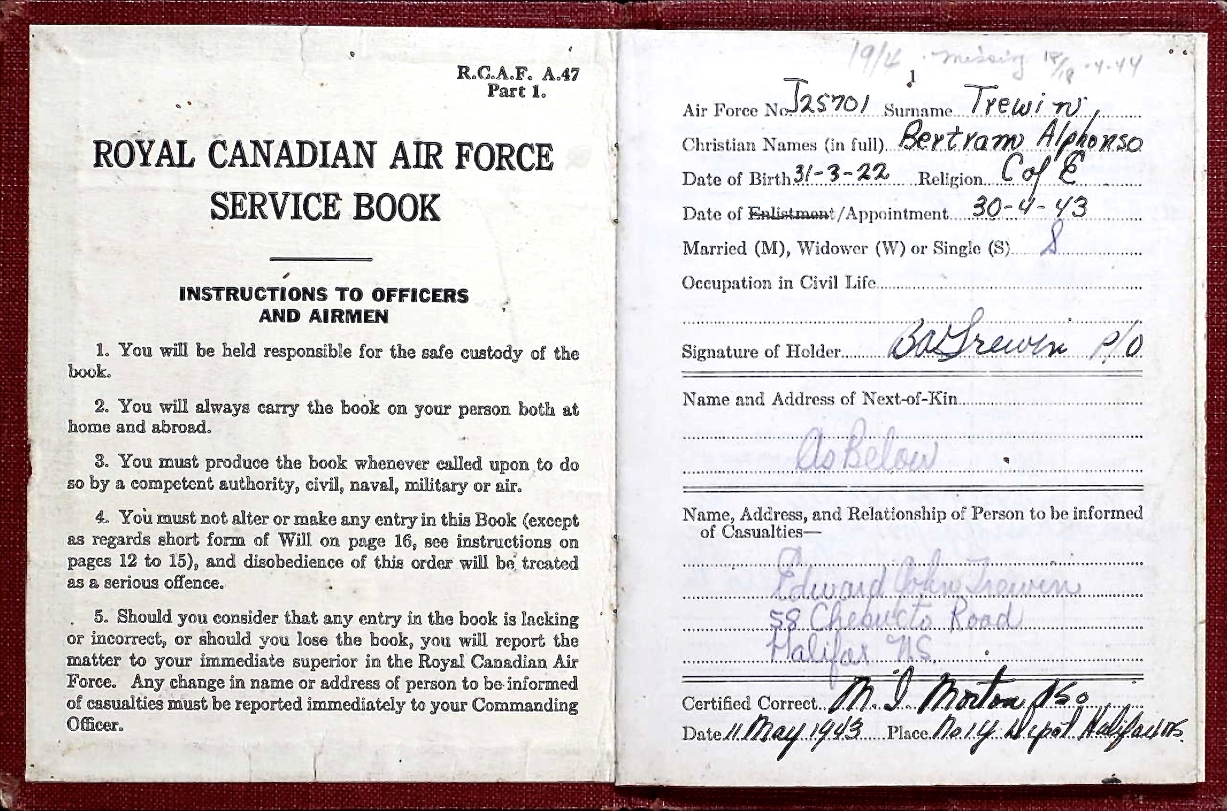 R.C.A.F. A.47
Part 1.
ROYAL CANADIAN AIR FORCE
SERVICE BOOK
INSTRUCTIONS TO OFFICERS
AND AIRMEN
1. You will be held responsible for the safe custody of the
book.
2. You will always carry the book on your person both at
home and abroad.
3. You must produce the book whenever called upon to do
so by a competent authority, civil, naval, military or air.
4. You must not alter or make any entry in this Book (except
as regards short form of Will on page 16, see instructions on
pages 12 to 15), and disobedience of this order will be treated
as a serious offence.
5. Should you consider that any entry in the book is lacking
or incorrect, or should you lose the book, you will report the
matter to your immediate superior in the Royal Canadian Air
Force. Any change in name or address of person to be informed
of casualties must be reported immediately to your Commanding
Officer.
19/4 - missing 18/19 - 4 - 44
1
Air Force No. J25701 Surname Trewin,
Christian Names (in full) Bertram Alphonso
Date of Birth 31-3-22 Religion C of E
Date of Enlistment/Appointment 30-4-43
Married (M), Widower (W) or Single (S) S
Occupation in Civil Life
Signature of Holder BATrewin P/O
Name and Address of Next-of-Kin
As Below
Name, Address, and Relationship of Person to be informed
of Casualties—
Edward John Trewin
58 Chebucto Road
Halifax NS.
Certified Correct M. I. Morton
Date 11 May 1943 Place No 1 Y Depot Halifax NS.